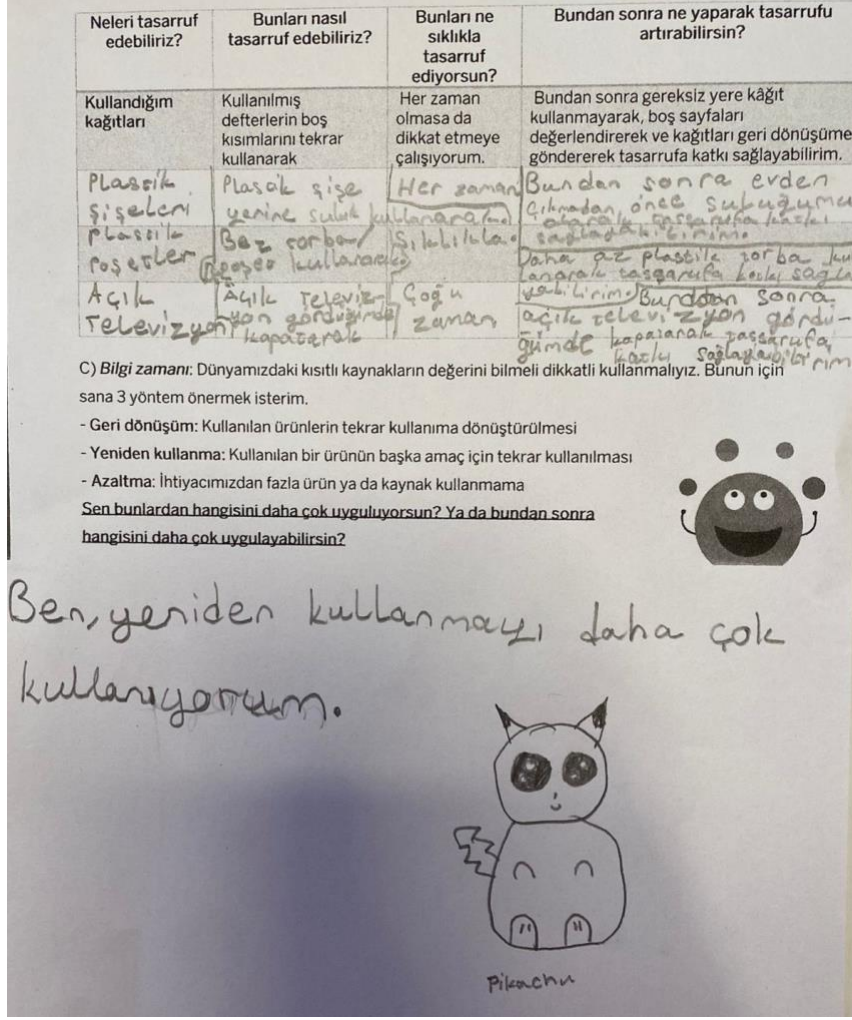 Neleri tasarruf edebiliriz?
Bunları nasıl tasarruf edebiliriz?
Bunları ne sıklıkla tasarruf ediyorsun?
Bundan sonra ne yaparak tasarrufu artırabilirsin?
Kullandığım kağıtları
Kullanılmış defterlerin boş kısımlarını tekrar kullanarak
Her zaman olmasa da dikkat etmeye çalışıyorum.
Bundan sonra gereksiz yere kâğıt kullanmayarak, boş sayfaları değerlendirerek ve kağıtları geri dönüşüme göndererek tasarrufa katkı sağlayabilirim.
Plastik şişeleri
Plastik şişe yerine suluk kullanarak
Her zaman
Bundan sonra evden Çıkmadan önce suluğumu alarak tasarrufa katkı sağlayabilirim.
Plastik poşetler
Bez torba/poşet kullanarak
Sıklıkla.
Daha az plastik torba kullanarak tasarrufa katkı sağlayabilirim.
Açık Televizyon
Açık Televizyon gördüğümde kapatarak
Çoğu zaman
Bundan sonra açık televizyon gördüğümde kapatarak tasarrufa katkı sağlayabilirim
C) Bilgi zamanı: Dünyamızdaki kısıtlı kaynakların değerini bilmeli dikkatli kullanmalıyız. Bunun için
sana 3 yöntem önermek isterim.
- Geri dönüşüm: Kullanılan ürünlerin tekrar kullanıma dönüştürülmesi
- Yeniden kullanma: Kullanılan bir ürünün başka amaç için tekrar kullanılması
- Azaltma: İhtiyacımızdan fazla ürün ya da kaynak kullanmama
Sen bunlardan hangisini daha çok uyguluyorsun? Ya da bundan sonra
hangisini daha çok uygulayabilirsin?
Ben, yeniden kullanmayı daha çok
kullanıyorum.
Pikachu